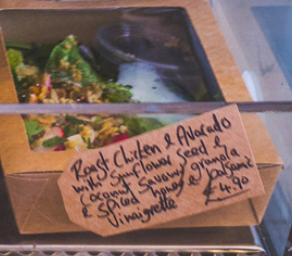 Roast Chicken & Avocado
with Sunflower Seed &
Coconut Savoury granola
& Spiced honey & balsamic
Vinaigrette £4.90